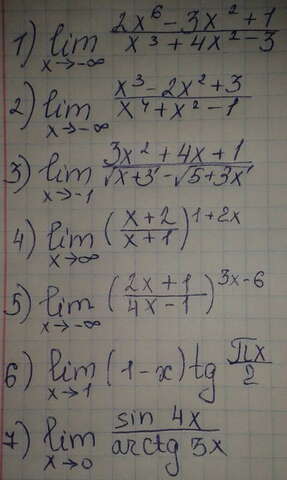 1) lim x→-∞ (2x⁶ - 3x² + 1)/(x³ + 4x² - 3)
2) lim x→-∞ (x³ - 2x² + 3)/(x⁴ + x² - 1)
3) lim x→-1 (3x² + 4x + 1)/(√(x+3) - √(5+3x))
4) lim x→∞ ((x+2)/(x+1))^(1+2x)
5) lim x→-∞ ((2x+1)/(4x-1))^(3x-6)
6) lim x→1 (1-x) tg πx/2
7) lim x→0 sin 4x/arctg 5x